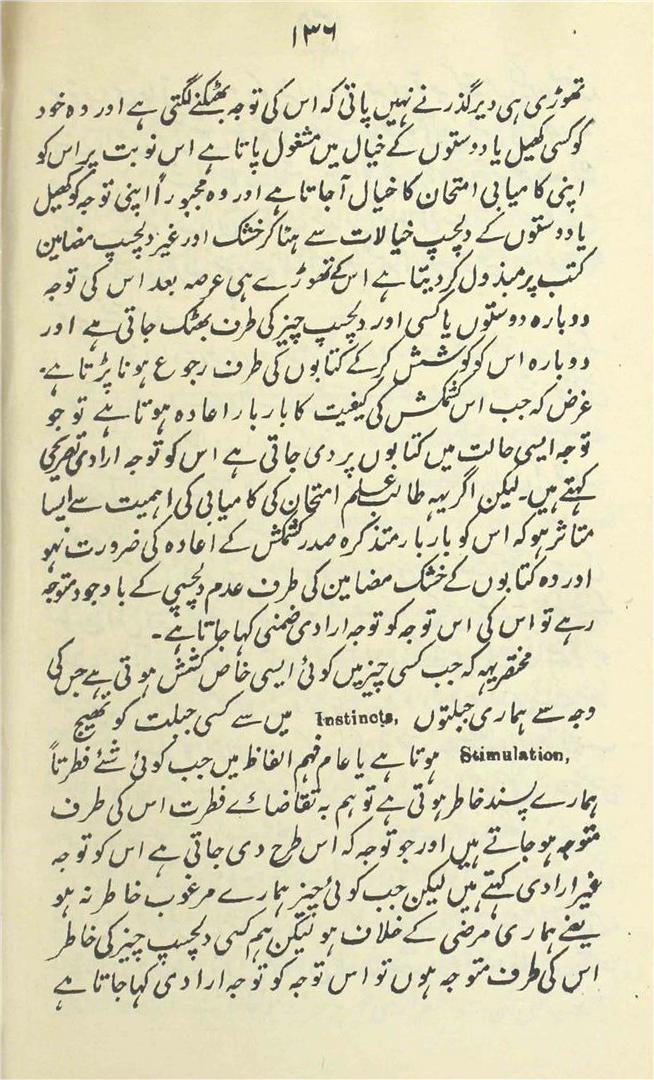 ۱۳۶
تھوڑی ہی دیر گذرنے نہیں پاتی کہ اس کی توجہ بھٹکنے لگتی ہے اور وہ خود
کو کسی کھیل یا دوستوں کے خیال میں مشغول پاتا ہے اس نوبت پر اس کو
اپنی کامیابی امتحان کا خیال آجاتا ہے اور وہ مجبوراً اپنی توجہ کو کھیل
یا دوستوں کے دلچسپ خیالات سے ہٹا کر خشک اور غیر دلچسپ مضامین
کتب پر مبذول کردیتا ہے اس کے تھوڑے ہی عرصہ بعد اس کی توجہ
دوبارہ دوستوں یا کسی اور دلچسپ چیز کی طرف بھٹک جاتی ہے اور
دوبارہ اس کو کوشش کرکے کتابوں کی طرف رجوع ہونا پڑتا ہے۔
غرض کہ جب اس کشمکش کی کیفیت کا بار بار اعادہ ہوتا ہے تو جو
توجہ ایسی حالت میں کتابوں پر دی جاتی ہے اس کو توجہ ارادی تصریحی
کہتے ہیں۔ لیکن اگر یہہ طالب علم امتحان کی کامیابی کی اہمیت سے ایسا
متاثر ہو کہ اس کو بار بار متذکرہ صدر کشمکش کے اعادہ کی ضرورت نہو
اور وہ کتابوں کے خشک مضامین کی طرف عدم دلچسپی کے باوجود متوجہ
رہے تو اس کی اس توجہ کو توجہ ارادی ضمنی کہا جاتا ہے۔
مختصر یہہ کہ جب کسی چیز میں کوئی ایسی خاص کشش ہوتی ہے جس کی
وجہ سے ہماری جبلتوں Instincts, میں سے کسی جبلت کو تھیج
Stimulation, ہوتا ہے یا عام فہم الفاظ میں جب کوئی شئے فطرتاً
ہمارے پسند خاطر ہوتی ہے تو ہم بہ تقاضائے فطرت اس کی طرف
متوجہ ہوجاتے ہیں اور جو توجہ کہ اس طرح دی جاتی ہے اس کو توجہ
غیر ارادی کہتے ہیں لیکن جب کوئی چیز ہمارے مرغوب خاطر نہ ہو
یعنے ہماری مرضی کے خلاف ہو لیکن ہم کسی دلچسپ چیز کی خاطر
اس کی طرف متوجہ ہوں تو اس توجہ کو توجہ ارادی کہا جاتا ہے